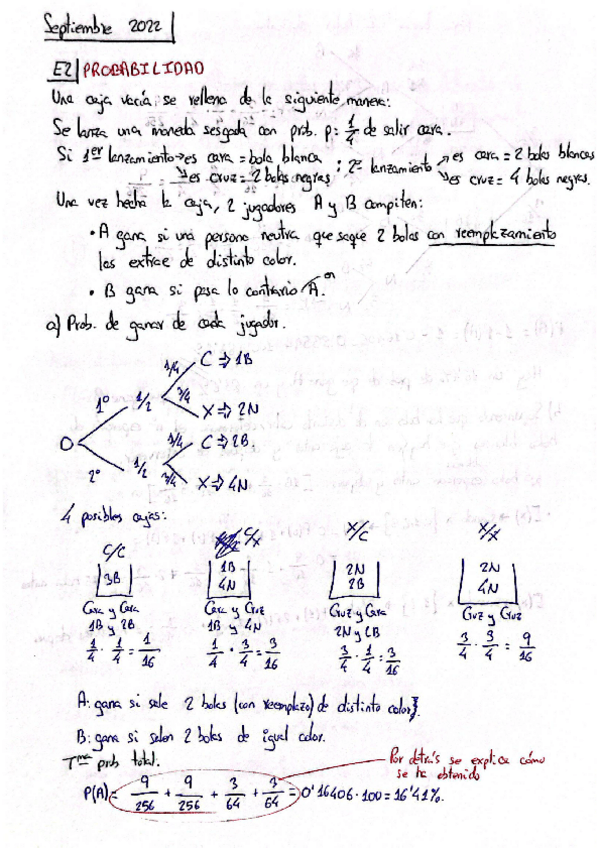 Septiembre 2022
E2 PROBABILIDAD
Una caja vacía, se rellena de la siguiente manera:
Se lanza una moneda sesgada con prob. p: 1/4 de salir cara.
Si 1er lanzamiento → es cara = bola blanca ; 2º lanzamiento → es cara = 2 bolas blancas
↘ es cruz = 2 bolas negras ↘ es cruz = 4 bolas negras.
Una vez hecha la caja, 2 jugadores A y B compiten:
• A gana si una persona neutra que saque 2 bolas con reemplazamiento
las extrae de distinto color.
• B gana si pasa lo contrario A.
a) Prob. de ganar de cada jugador.
1/4 C ⇒ 1B
1º 1/2 3/4 X ⇒ 2N
O
2º 1/2 1/4 C ⇒ 2B
3/4 X ⇒ 4N
4 posibles cajas:
C/C C/X X/C X/X
3B 1B 4N 2N 2B 2N 4N
Cara y Cara Cara y Cruz Cruz y Cara Cruz y Cruz
1B y 2B 1B y 4N 2N y 2B
1/4 · 1/4 = 1/16 1/4 · 3/4 = 3/16 3/4 · 1/4 = 3/16 3/4 · 3/4 = 9/16
A: gana si sale 2 bolas (con reemplazo) de distinto color}.
B: gana si salen 2 bolas de igual color.
Tma prob total.
Por detrás se explica cómo
se ha obtenido
P(A) = 9/256 + 9/256 + 3/64 + 3/64 = 0'16406 · 100 = 16'41%.